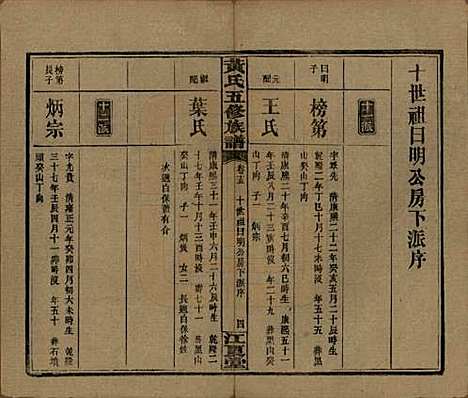 十世祖日明公房下派序
十一派
日明子
榜第
字英先 清康熙二十二年癸亥五月二十辰時生
乾隆二年丁巳十月十七未時歿
元配
王氏
清康熙二十年辛酉七月初六巳時生 康熙五十一
年壬辰八月二十三亥時歿 年二十九 葬黑山
丁向 子一 炳宗
黃氏五修族譜
卷十五 十世祖日明公房下派序 四
江夏堂
繼配
葉氏
清康熙三十一年壬申六月二十六戌時生 乾隆二
十七年壬午十月十三酉時歿
癸山丁向 子一 炳 女二 長適白保徐姓
次適白保游有介
十二派
榜第長子
炳宗
字光貴 清雍正元年癸卯四月初大未時生 乾隆
三十七年壬辰四月十一 時歿 年五十 葬石墳
頭癸山丁向